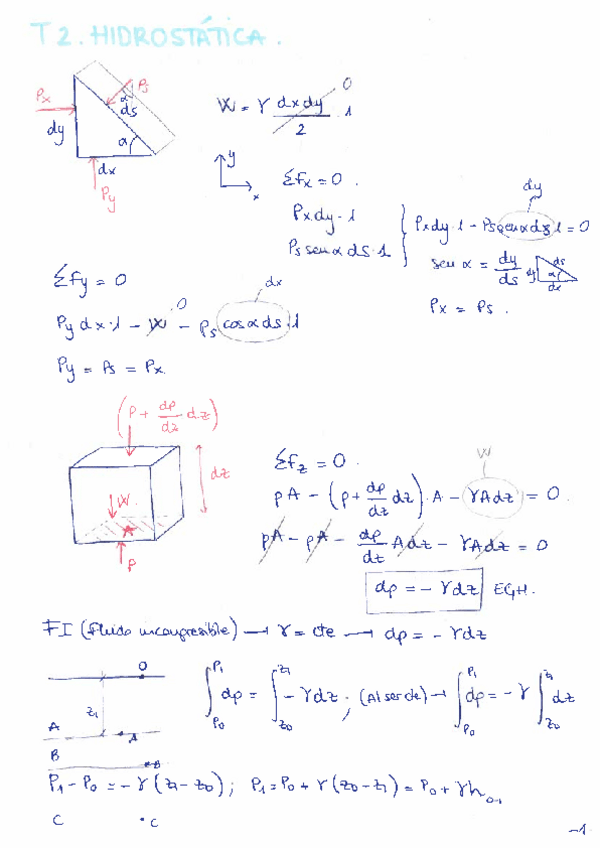 T2. HIDROSTÁTICA.
Px
Ps
α
ds
dy
α
dx
Py
W = γ dxdy/2 · 1
0
y
x
ΣFx = 0.
Px dy · 1
Ps sen α ds · 1
dy
Px dy · 1 - Ps sen α ds · 1 = 0
sen α = dy/ds
dy
ds
α
dx
Px = Ps.
ΣFy = 0
dx
0
Py dx · 1 - W - Ps cos α ds · 1
Py = Ps = Px
(P + dp/dz dz)
dz
W.
A
P
ΣFz = 0.
W
pA - (p + dp/dz dz) · A - γAdz = 0.
pA - pA - dp/dz Adz - γAdz = 0
dp = - γdz EGH.
FI (fluido incompresible) → γ = cte → dp = - γdz
0
z1
A
A
B
B
∫P0 P1 dp = ∫z0 z1 - γdz ; (Al ser cte) → ∫P0 P1 dp = - γ ∫z0 z1 dz
P1 - P0 = - γ (z1 - z0) ; P1 = P0 + γ (z0 - z1) = P0 + γh0-1
C
C
-1